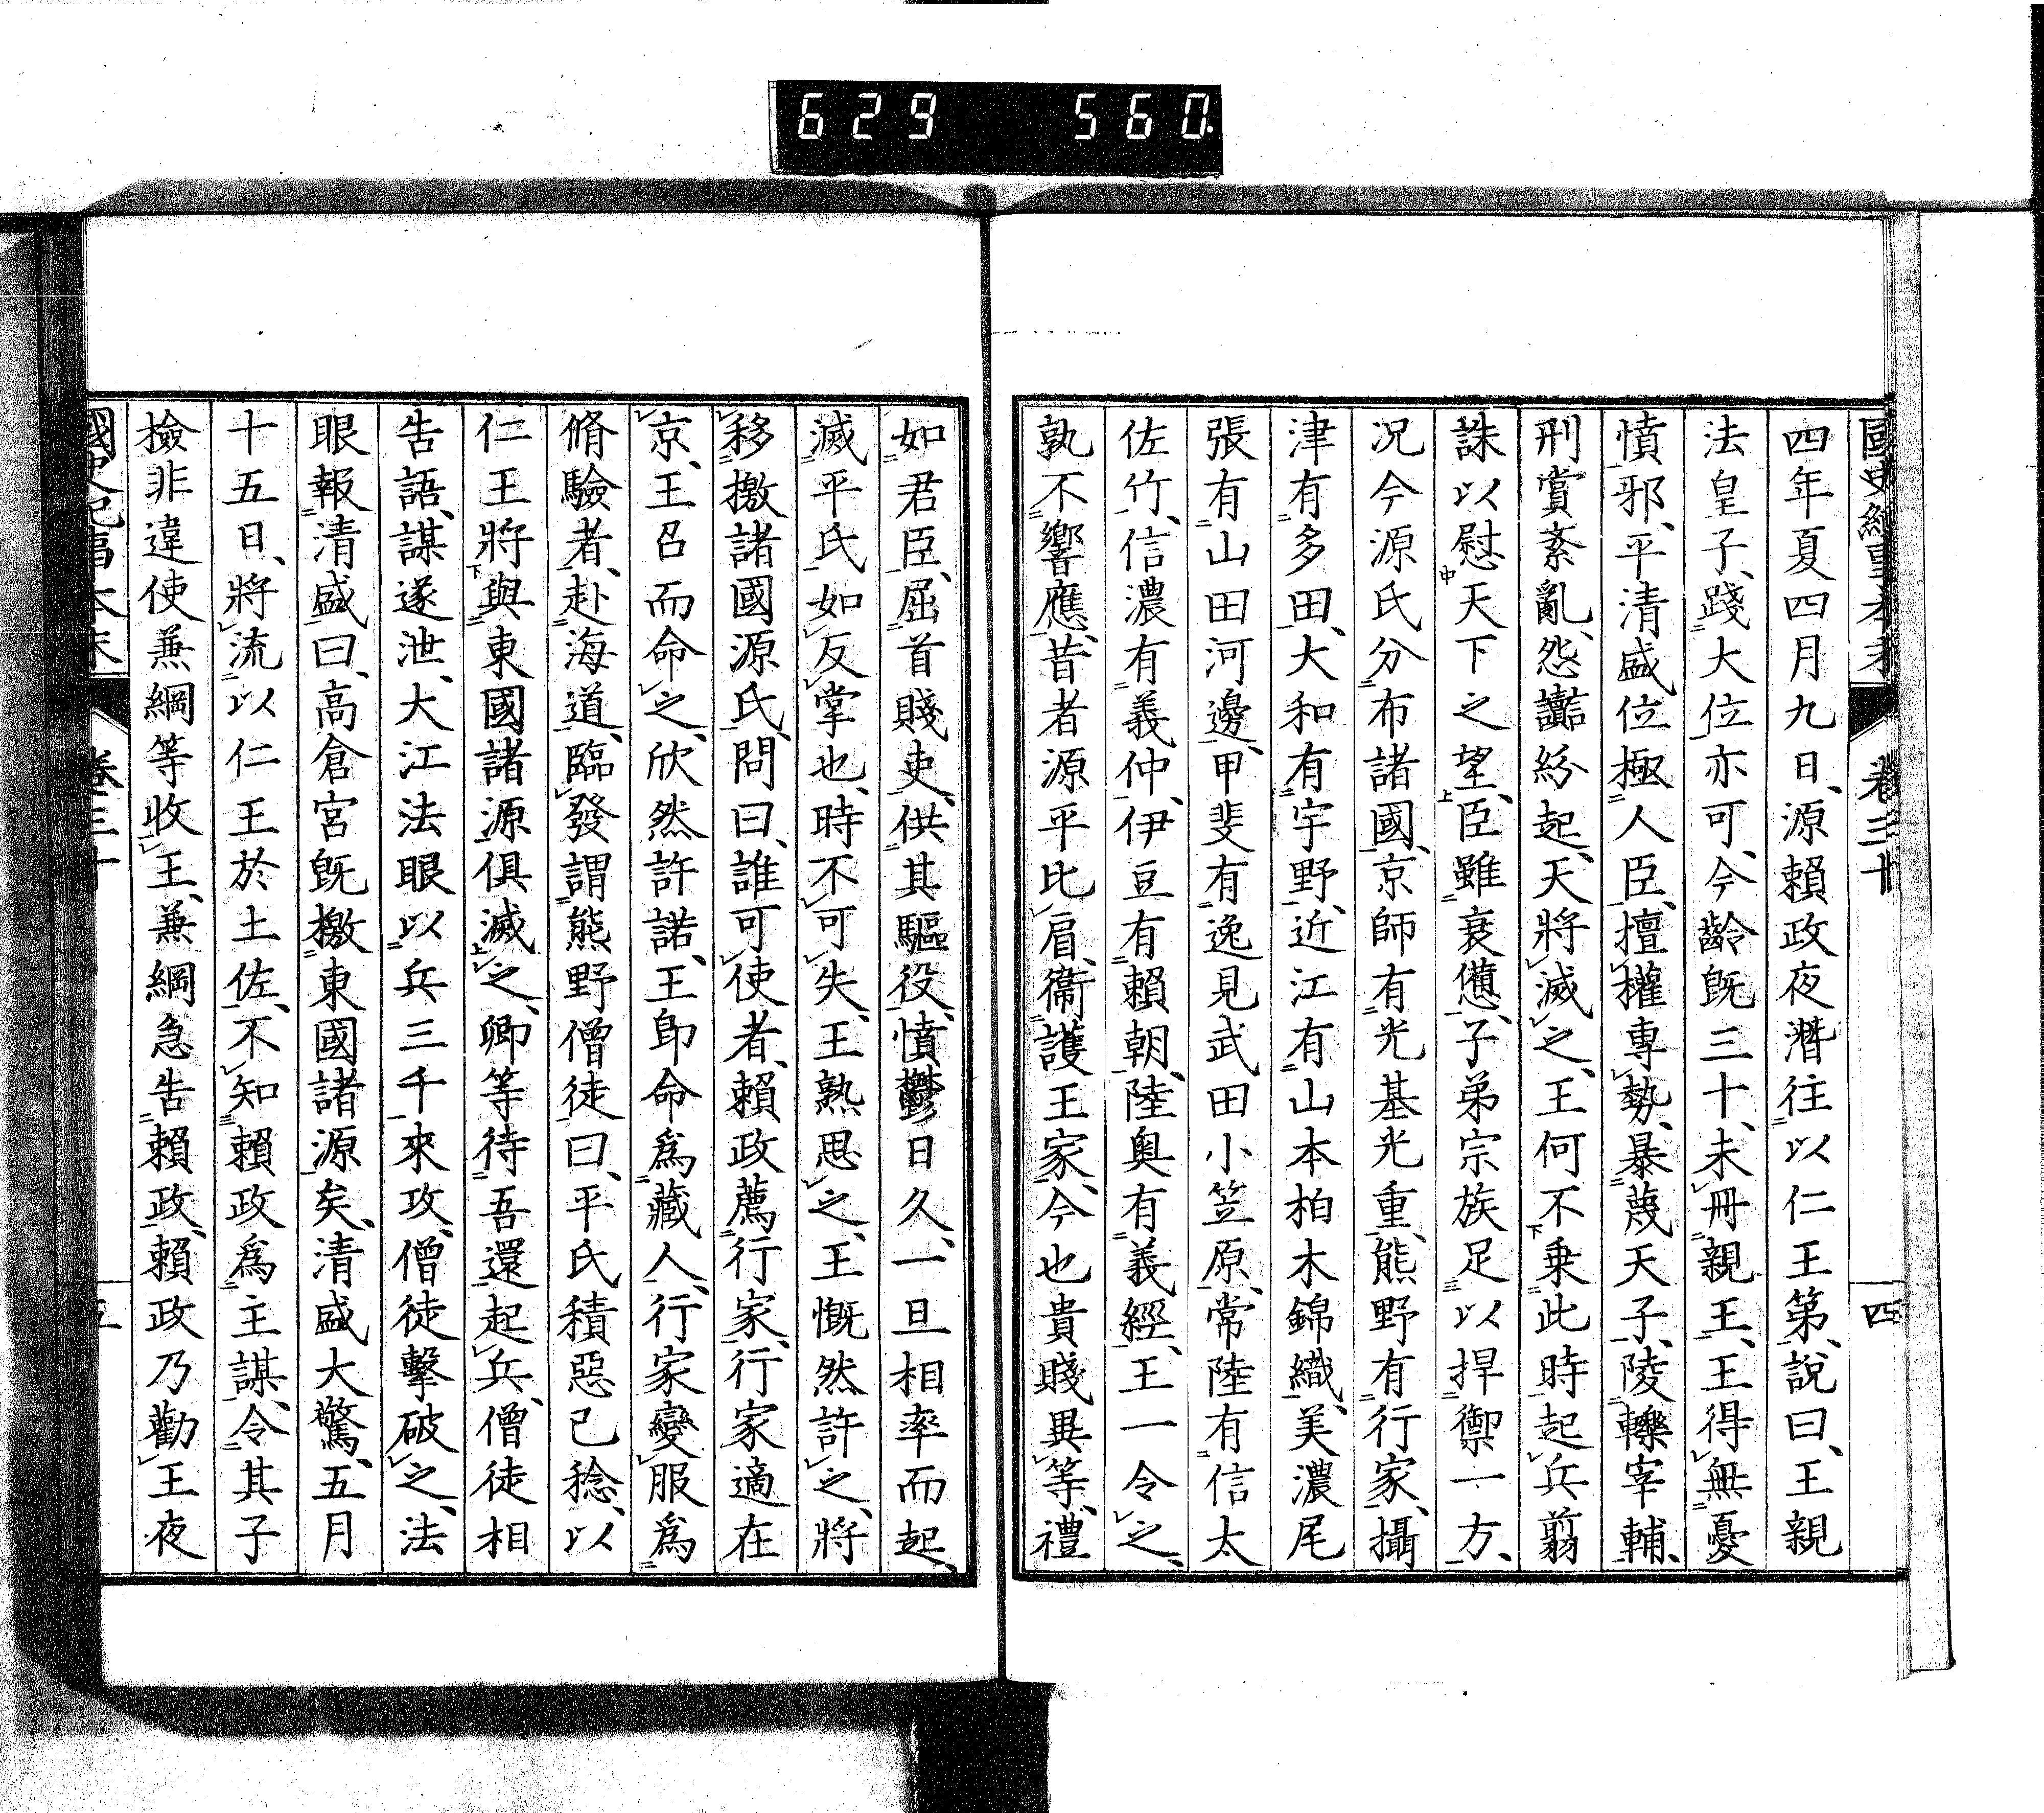 629 560.
國史紀事本末 卷三十 四
四年夏四月九日、源賴政夜潛往以仁王第、説曰、王親
法皇子、踐大位亦可、今齡既三十、未册親王、王得無憂
憤邪、平清盛位極人臣、擅權專勢、暴蔑天子、陵轢宰輔、
刑賞紊亂、怨讟紛起、天將滅之、王何不乗此時起兵翦
誅以慰天下之望、臣雖衰憊、子弟宗族足以捍禦一方、
况今源氏分布諸國、京師有光基光重、熊野有行家、攝
津有多田、大和有宇野、近江有山本柏木錦織、美濃尾
張有山田河邊、甲斐有逸見武田小笠原、常陸有信太
佐竹、信濃有義仲、伊豆有賴朝、陸奥有義經、王一令之、
孰不響應、昔者源平比肩、衞護王家、今也貴賤異等、禮
如君臣、屈首賤吏、供其驅役、憤鬱日久、一旦相率而起、
滅平氏如反掌也、時不可失、王熟思之、王慨然許之、將
移檄諸國源氏、問曰、誰可使者、賴政薦行家、行家適在
京、王召而命之、欣然許諾、王卽命爲藏人、行家變服爲
脩驗者、赴海道、臨發謂熊野僧徒曰、平氏積惡已稔、以
仁王將與東國諸源俱滅之、卿等待吾還起兵、僧徒相
告語、謀遂泄、大江法眼以兵三千來攻、僧徒擊破之、法
眼報清盛曰、高倉宮既檄東國諸源矣、清盛大驚、五月
十五日、將流以仁王於土佐、不知賴政爲主謀、令其子
檢非違使兼綱等收王、兼綱急告賴政、賴政乃勸王夜
國史紀事本末 卷三十 五